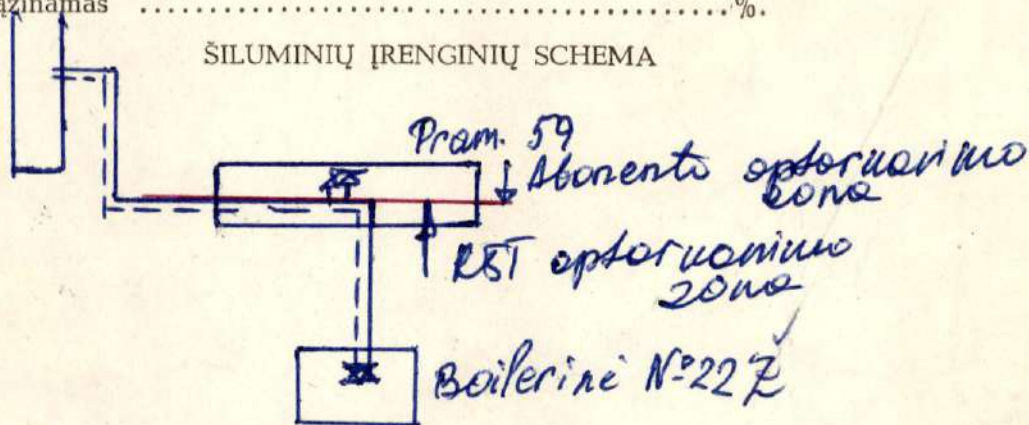 ąžinamas ........................................................%.
ŠILUMINIŲ ĮRENGINIŲ SCHEMA
Pram. 59
Abonento aptarnavimo
zona
RŠT aptarnavimo
zona
Boilerinė N°22 Ž